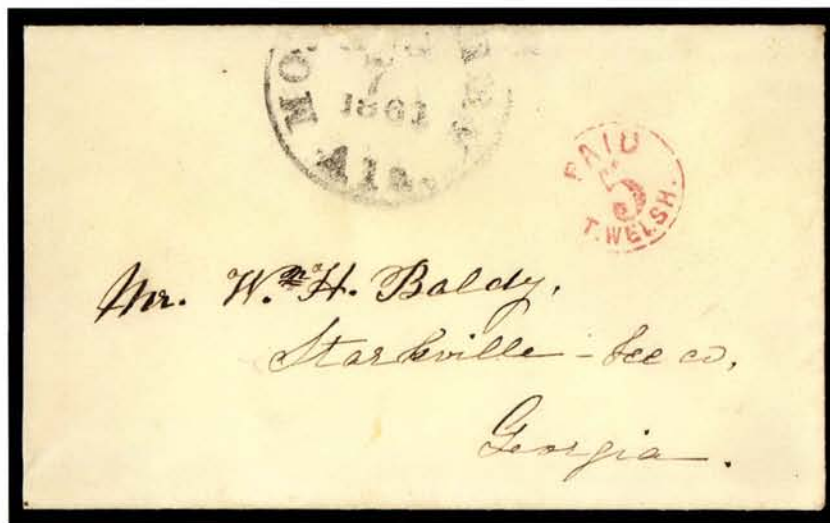 1861
PAID
5
T. WELSH.
Mr. Wm. H. Baldy,
Starkville - Lee co,
Georgia.